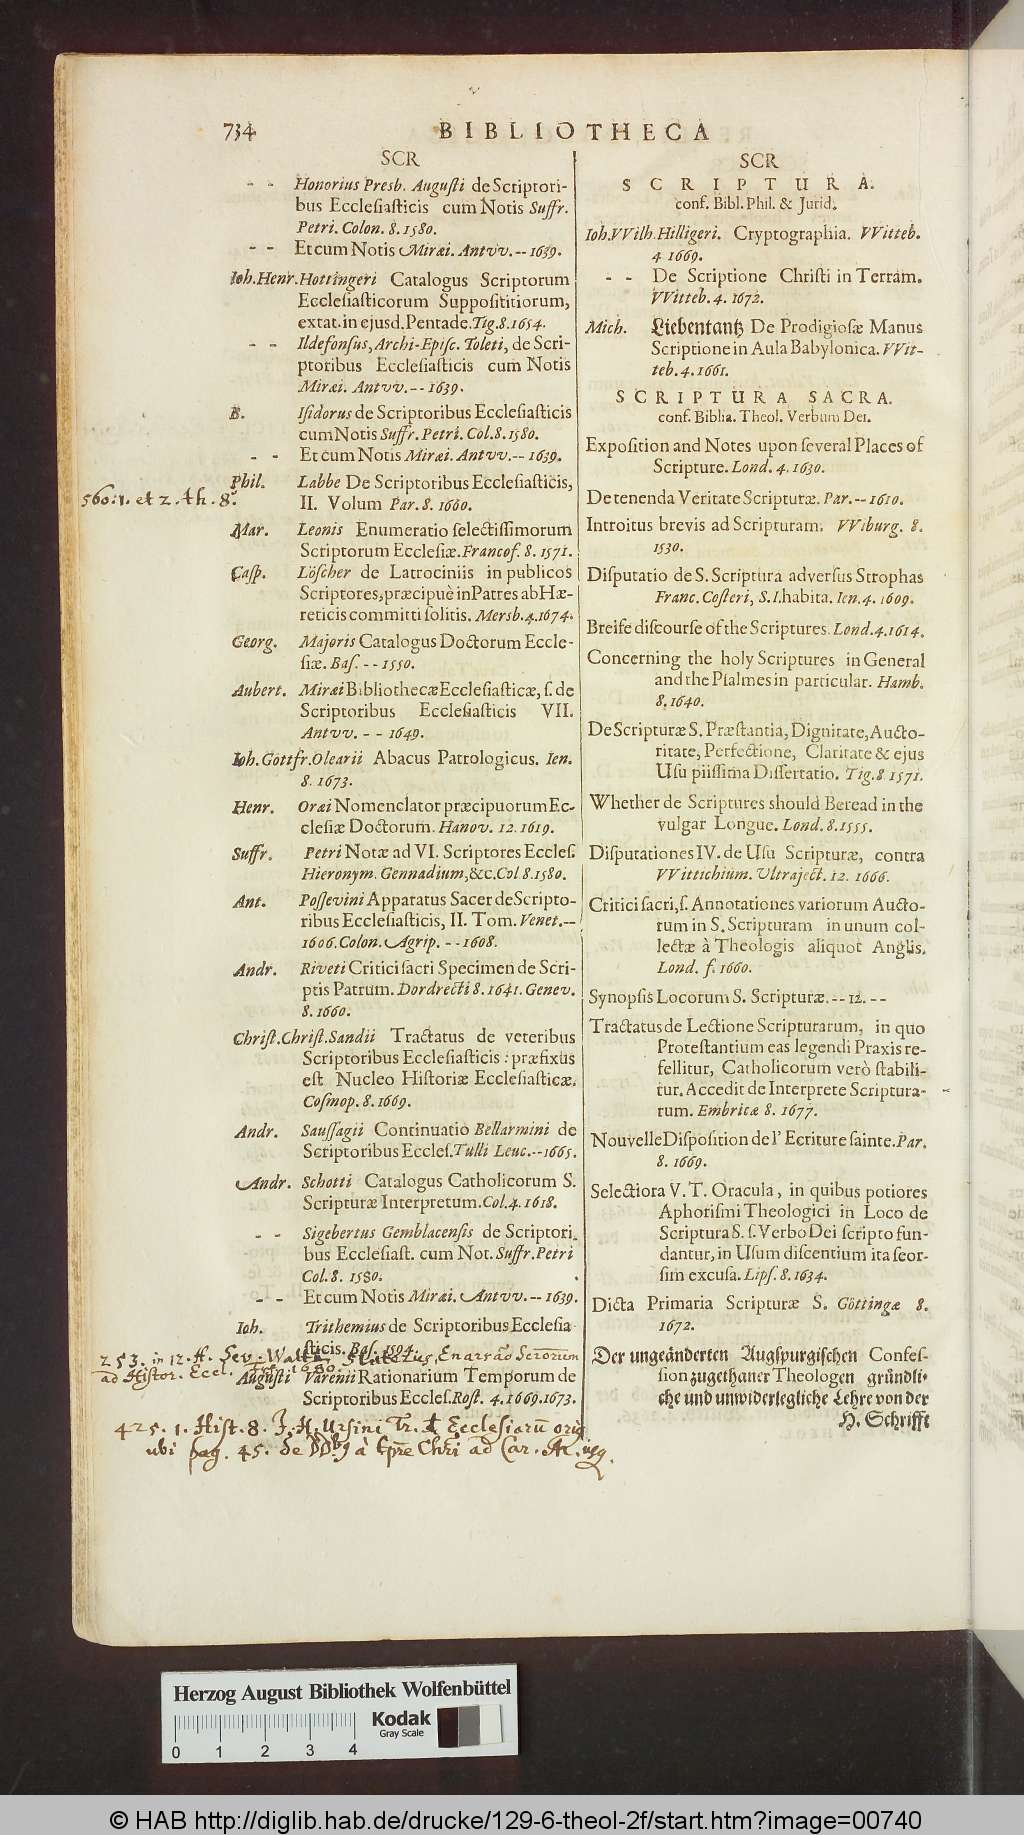 734
BIBLIOTHECA
SCR
- - Honorius Presb. Augusti de Scriptori-
bus Ecclesiasticis cum Notis Suffr.
Petri. Colon. 8. 1580.
- - Et cum Notis Miræi. Antvv. -- 1639.
Ioh. Henr. Hottingeri Catalogus Scriptorum
Ecclesiasticorum Supposititiorum,
extat. in ejusd. Pentade. Tig. 8. 1654.
- - Ildefonsus, Archi-Episc. Toleti, de Scri-
ptoribus Ecclesiasticis cum Notis
Miræi. Antvv. -- 1639.
B. Isidorus de Scriptoribus Ecclesiasticis
cum Notis Suffr. Petri. Col. 8. 1580.
- - Et cum Notis Miræi. Antvv. -- 1639.
Phil. Labbe De Scriptoribus Ecclesiasticis,
560. 1. et 2. th. 8.
II. Volum Par. 8. 1660.
Mar. Leonis Enumeratio selectissimorum
Scriptorum Ecclesiæ. Francof. 8. 1571.
Casp. Löscher de Latrociniis in publicos
Scriptores, præcipuè in Patres ab Hæ-
reticis committi solitis. Mersb. 4. 1674.
Georg. Majoris Catalogus Doctorum Eccle-
siæ. Bas. -- 1550.
Aubert. Miræi Bibliothecæ Ecclesiasticæ, s. de
Scriptoribus Ecclesiasticis VII.
Antvv. - - 1649.
Ioh. Gottfr. Olearii Abacus Patrologicus. Ien.
8. 1673.
Henr. Oræi Nomenclator præcipuorum Ec-
clesiæ Doctorum. Hanov. 12. 1619.
Suffr. Petri Notæ ad VI. Scriptores Eccles.
Hieronym. Gennadium, &c. Col 8. 1580.
Ant. Possevini Apparatus Sacer de Scripto-
ribus Ecclesiasticis, II. Tom. Venet. --
1606. Colon. Agrip. -- 1608.
Andr. Riveti Critici sacri Specimen de Scri-
ptis Patrum. Dordrecti 8. 1641. Genev.
8. 1660.
Christ. Christ. Sandii Tractatus de veteribus
Scriptoribus Ecclesiasticis: præfixus
est Nucleo Historiæ Ecclesiasticæ.
Cosmop. 8. 1669.
Andr. Saussagii Continuatio Bellarmini de
Scriptoribus Eccles. Tulli Leuc. -- 1665.
Andr. Schotti Catalogus Catholicorum S.
Scripturæ Interpretum. Col. 4. 1618.
- - Sigebertus Gemblacensis de Scriptori.
bus Ecclesiast. cum Not. Suffr. Petri
Col. 8. 1580.
- - Et cum Notis Miræi. Antvv. -- 1639.
Ioh. Trithemius de Scriptoribus Ecclesia
sticis. Bas. 1594.
253. in 12. H. Sev.
ad Histor. Eccl.
Augusti Varenii Rationarium Temporum de
Scriptoribus Eccles. Rost. 4. 1669. 1673.
425. 1. Hist. 8. J. H. Ursini Tr. Ecclesiarū orig
ubi pag. 45. de à Chri ad Car.
SCR
SCRIPTURA.
conf. Bibl. Phil. & Jurid.
Ioh. VVilh. Hilligeri. Cryptographia. VVitteb.
4 1669.
- - De Scriptione Christi in Terram.
VVitteb. 4. 1672.
Mich. Liebentantz De Prodigiosæ Manus
Scriptione in Aula Babylonica. VVit-
teb. 4. 1661.
SCRIPTURA SACRA.
conf. Biblia. Theol. Verbum Dei.
Exposition and Notes upon several Places of
Scripture. Lond. 4. 1630.
De tenenda Veritate Scripturæ. Par. -- 1610.
Introitus brevis ad Scripturam. VViburg. 8.
1530.
Disputatio de S. Scriptura adversus Strophas
Franc. Costeri, S. I. habita. Ien. 4. 1609.
Breife discourse of the Scriptures. Lond. 4. 1614.
Concerning the holy Scriptures in General
and the Psalmes in particular. Hamb.
8. 1640.
De Scripturæ S. Præstantia, Dignitate, Aucto-
ritate, Perfectione, Claritate & ejus
Usu piissima Dissertatio. Tig. 8 1571.
Whether de Scriptures should Beread in the
vulgar Longue. Lond. 8. 1555.
Disputationes IV. de Usu Scripturæ, contra
VVittichium. Ultraject. 12. 1666.
Critici sacri, s. Annotationes variorum Aucto-
rum in S. Scripturam in unum col-
lectæ à Theologis aliquot Anglis.
Lond. f. 1660.
Synopsis Locorum S. Scripturæ. -- 12. --
Tractatus de Lectione Scripturarum, in quo
Protestantium eas legendi Praxis re-
fellitur, Catholicorum verò stabili-
tur. Accedit de Interprete Scriptura-
rum. Embricæ 8. 1677.
Nouvelle Disposition de l' Ecriture sainte. Par.
8. 1669.
Selectiora V. T. Oracula, in quibus potiores
Aphorismi Theologici in Loco de
Scriptura S. s. Verbo Dei scripto fun-
dantur, in Usum discentium ita seor-
sim excusa. Lips. 8. 1634.
Dicta Primaria Scripturæ S. Göttingæ 8.
1672.
Der ungeänderten Augspurgischen Confes-
sion zugethaner Theologen gründli-
che und unwiderlegliche Lehre von der
H. Schrifft
Herzog August Bibliothek Wolfenbüttel
Kodak
Gray Scale
0 1 2 3 4
© HAB http://diglib.hab.de/drucke/129-6-theol-2f/start.htm?image=00740